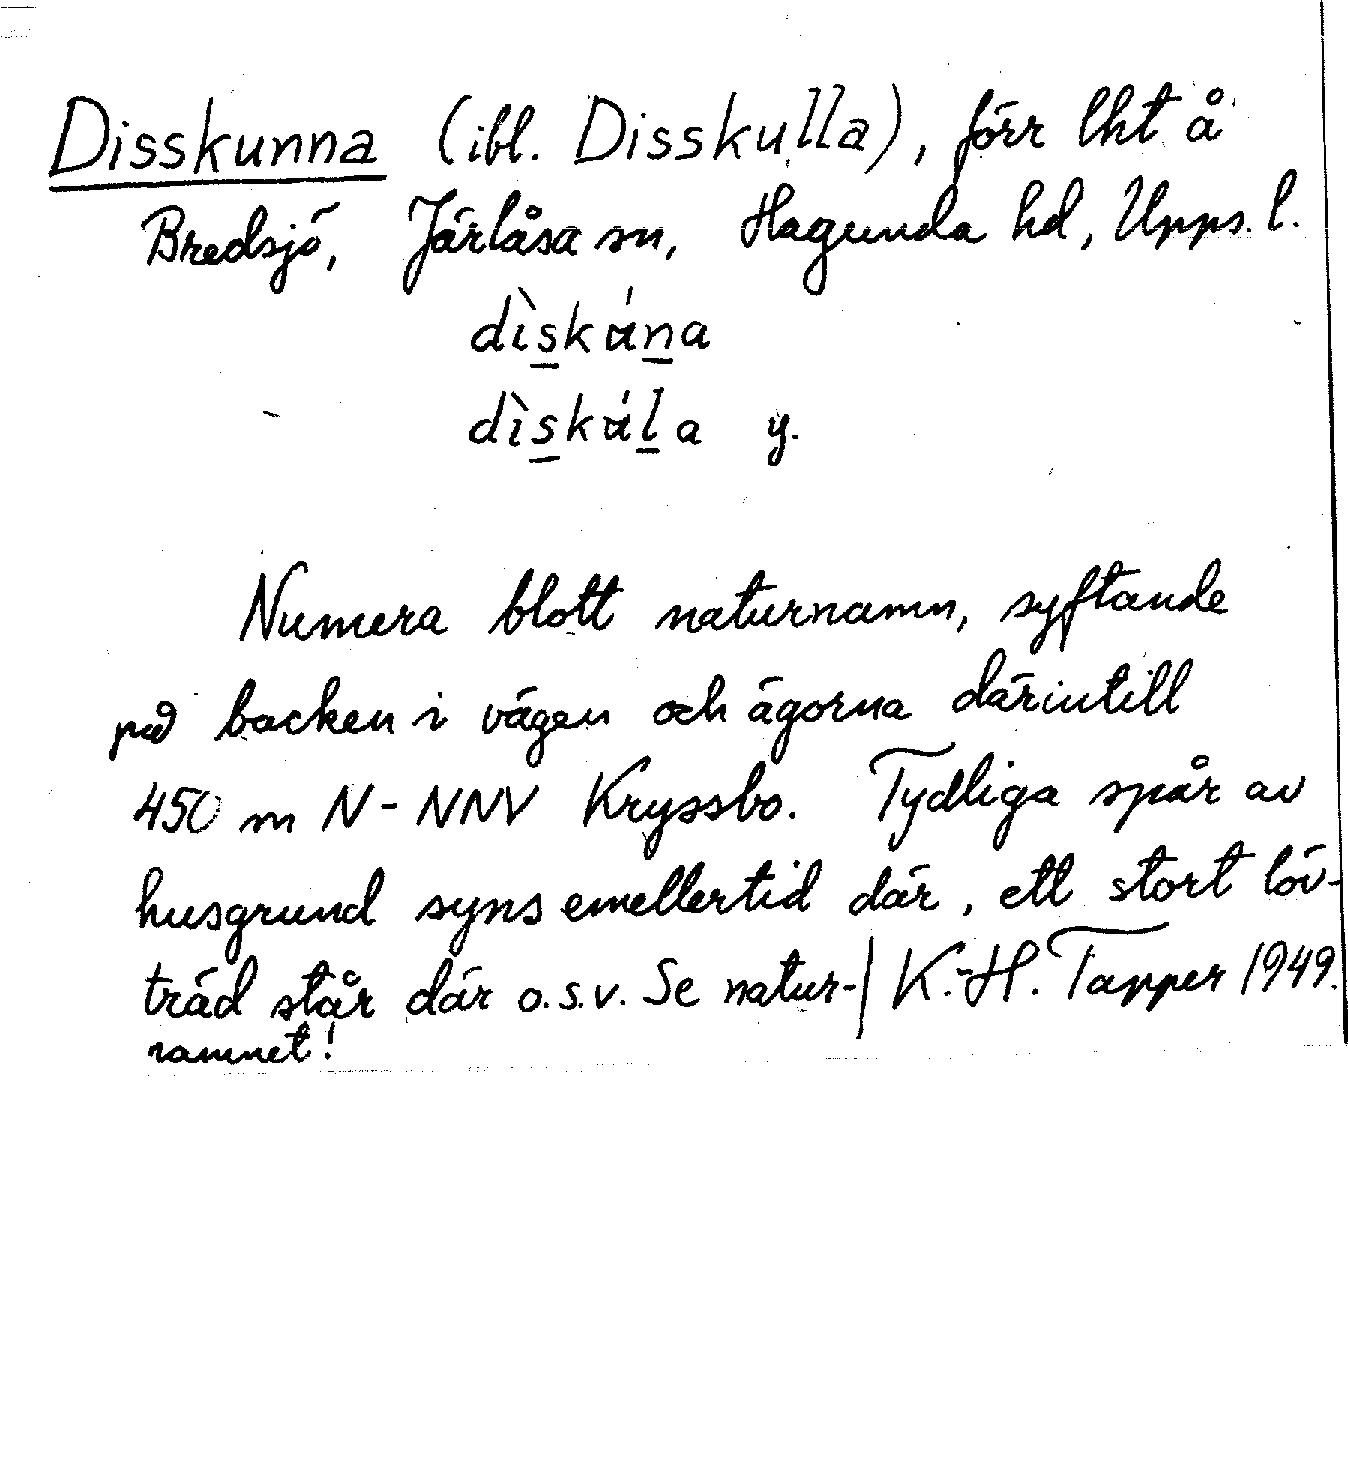 Disskunna (ibl. Disskulla), förr lht å
Bredsjö, Järlåsa sn, Hagunda hd, Upps. l.
dìskúna
dìskúla y.
Numera blott naturnamn, syftande
på backen i vägen och ägorna därintill
450 m N - NNV Kryssbo. Tydliga spår av
husgrund syns emellertid där, ett stort löv-
träd står där o.s.v. Se natur-| K.-H. Tapper 1949.
namnet!